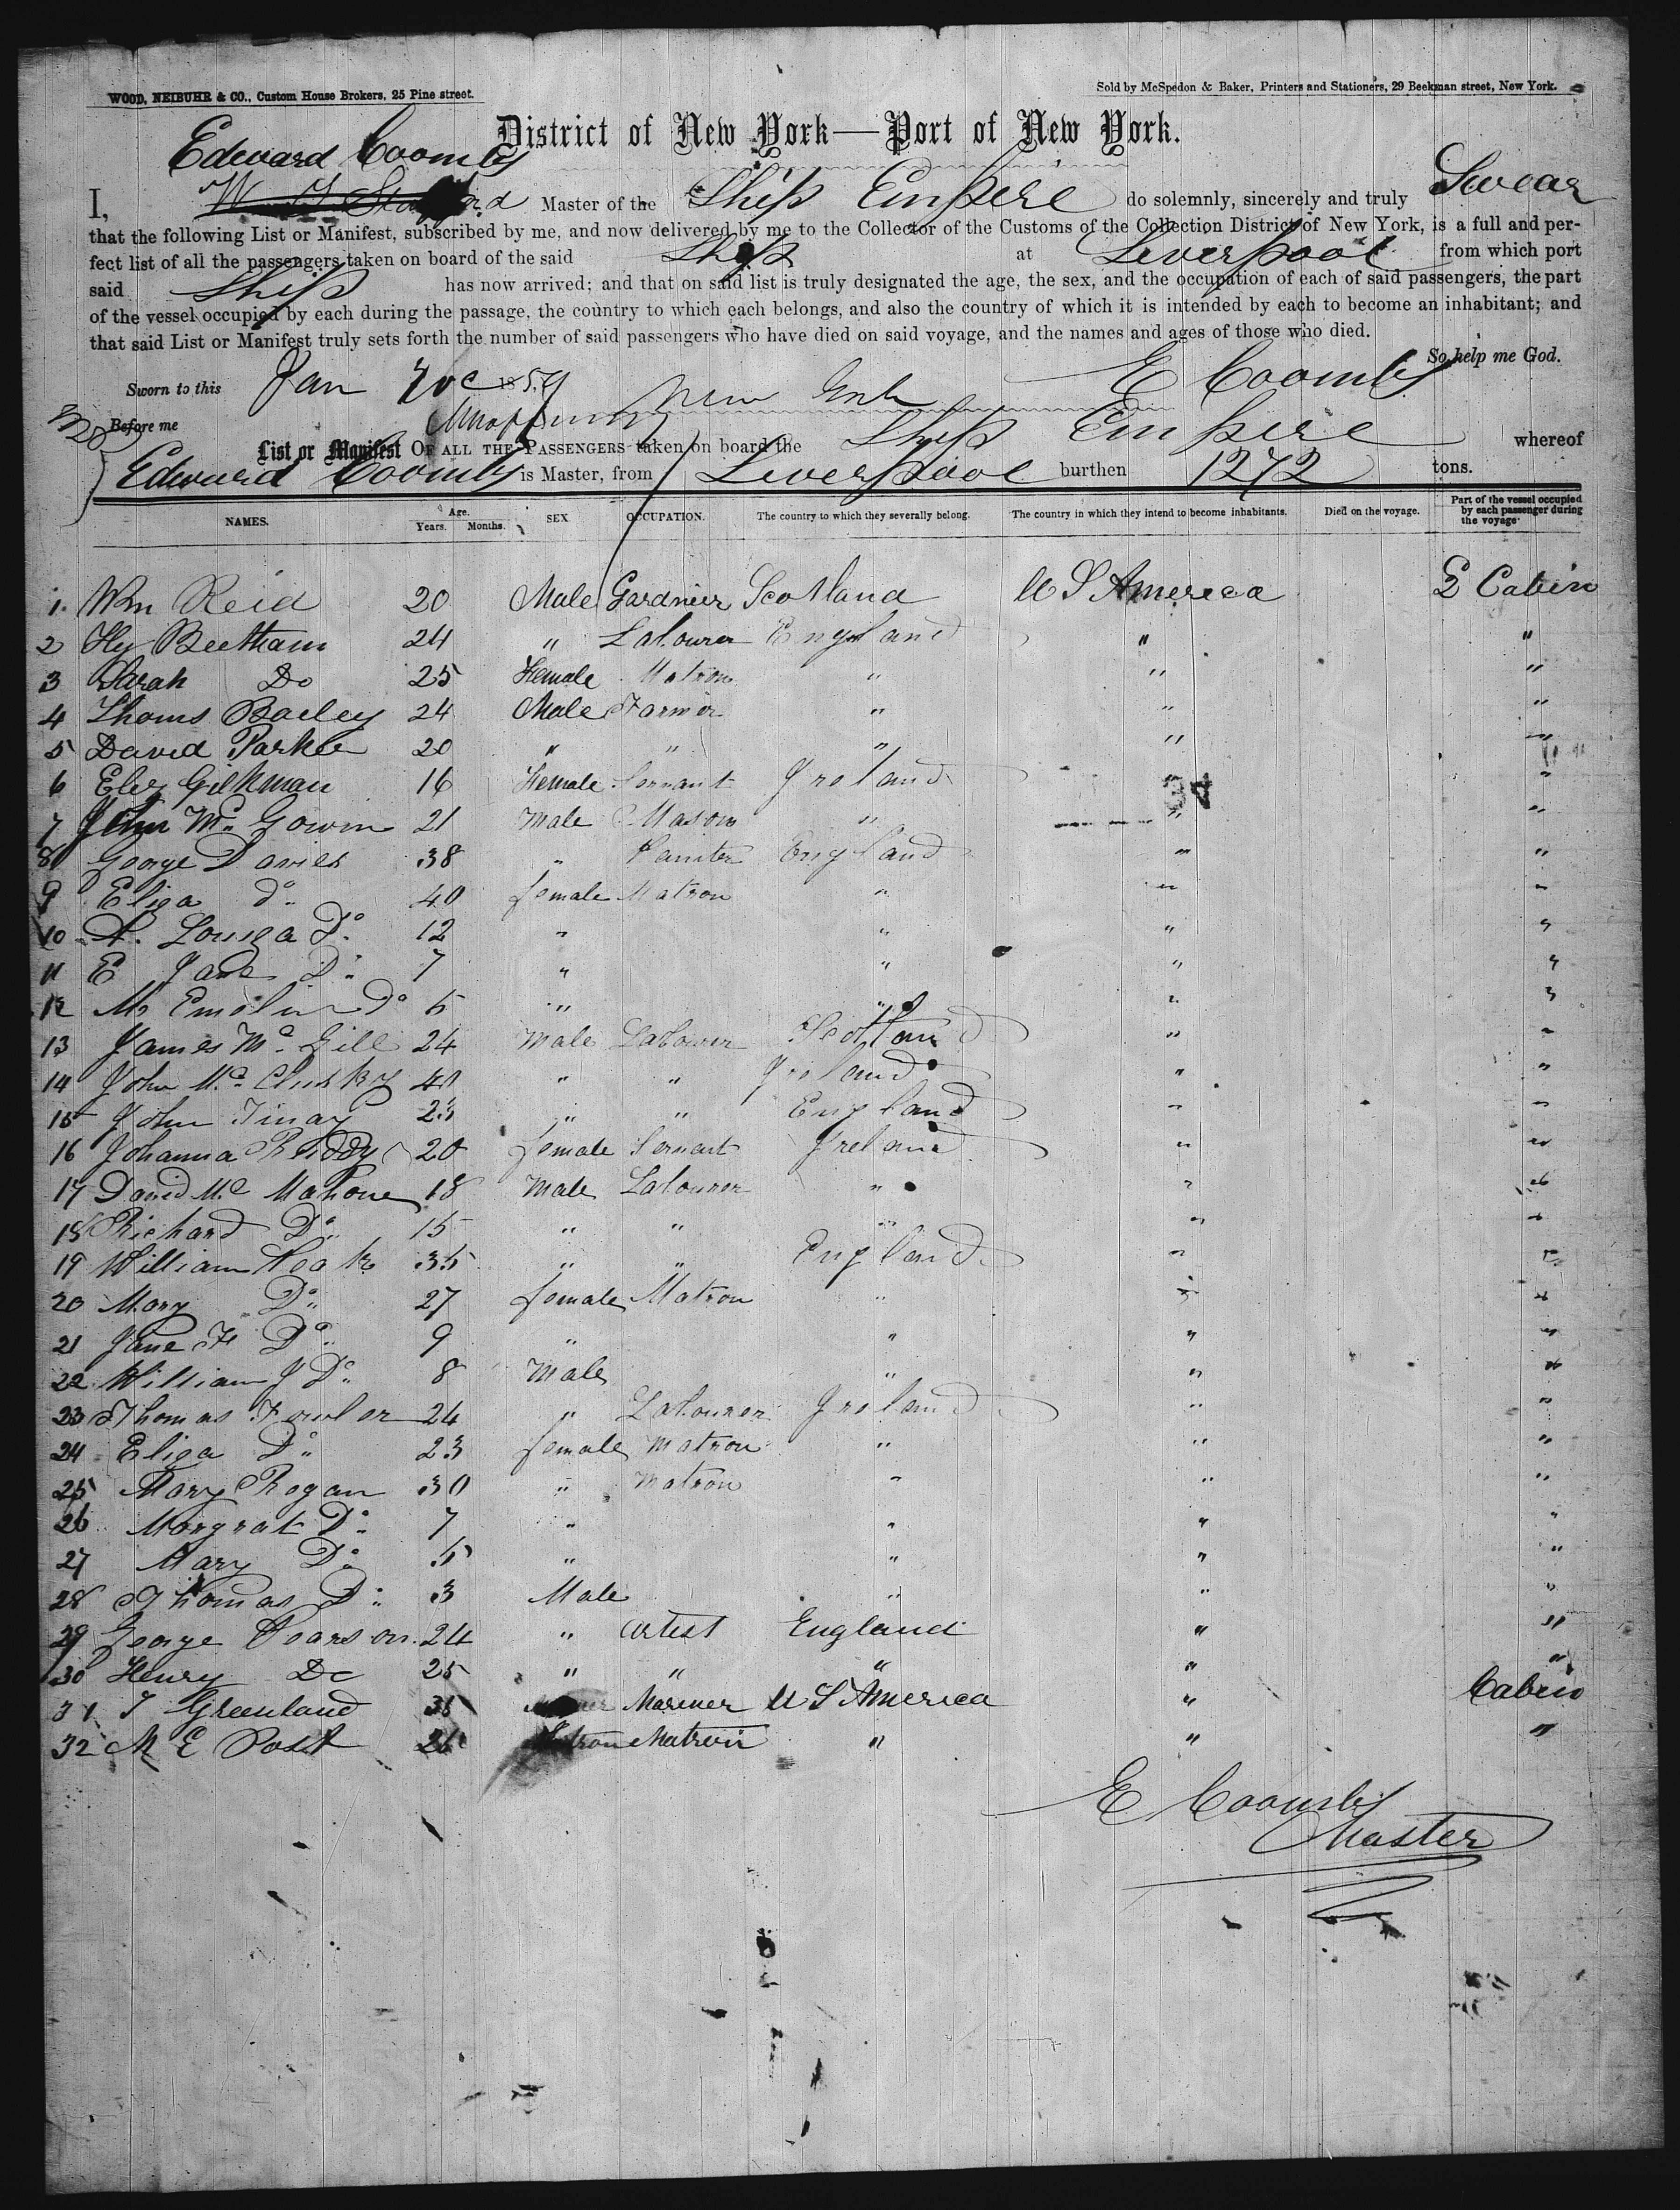 WOOD, NEIBUHR & CO., Custom House Brokers, 25 Pine street.
Sold by McSpedon & Baker, Printers and Stationers, 29 Beekman street, New York.
District of New York—Port of New York.
Edward Coombs
I, Master of the Ship Empire do solemnly, sincerely and truly Swear
that the following List or Manifest, subscribed by me, and now delivered by me to the Collector of the Customs of the Collection District of New York, is a full and per-
fect list of all the passengers taken on board of the said Ship at Liverpool from which port
said Ship has now arrived; and that on said list is truly designated the age, the sex, and the occupation of each of said passengers, the part
of the vessel occupied by each during the passage, the country to which each belongs, and also the country of which it is intended by each to become an inhabitant; and
that said List or Manifest truly sets forth the number of said passengers who have died on said voyage, and the names and ages of those who died.
So help me God.
Sworn to this Jan E Coombs
Before me New York
List or Manifest OF ALL THE PASSENGERS taken on board the Ship Empire whereof
Edward Coombs is Master, from Liverpool burthen 1272 tons.
NAMES. Age. Years. Months. SEX OCCUPATION. The country to which they severally belong. The country in which they intend to become inhabitants. Died on the voyage. Part of the vessel occupied by each passenger during the voyage
1. Wm Reid 20 Male Gardnier Scotland U S America 2 Cabin
2 Hy Beetham 24 " Labourer England " "
3 Sarah Do 25 Female Matron " " "
4 Thoms Bailey 24 Male Farmer " " "
5 David Parker 20 " " " " "
6 Eliz Gilkman 16 Female Servant Ireland " "
7 John Mc Gowin 21 Male Mason " " "
8 George Davies 38 " Painter England " "
9 Eliza Do 40 female Matron " " "
10 A. Louiza Do 12 " " " "
11 E Jane Do 7 " " " "
12 M Emolin Do 5 " " " "
13 James Mc Gill 24 Male Labourer Scotland " "
14 John Mc Clusky " " Ireland " "
15 John Finay 23 " " England " "
16 Johanna Reiddy 20 female Servant Ireland " "
17 David Mc Mahone 18 Male Labourer " " "
18 Richard Do 15 " " " " "
19 William Hook 35 " " England " "
20 Mary Do 27 female Matron " " "
21 Jane F Do 9 " " " "
22 William J Do 8 Male " " "
23 Thomas Fowler 24 " Labourer Ireland " "
24 Eliza Do 23 female Matron " " "
25 Mary Rogan 30 " Matron " " "
26 Margrat Do 7 " " " "
27 Mary Do 5 " " " "
28 Thomas Do 3 Male " " "
29 George Pearson 24 " Artist England " "
30 Henry Do 25 " " " " "
31 T Greenland 35 Mariner U S America " Cabin
32 M E Post 26 Matron " " "
E Coombs
Master